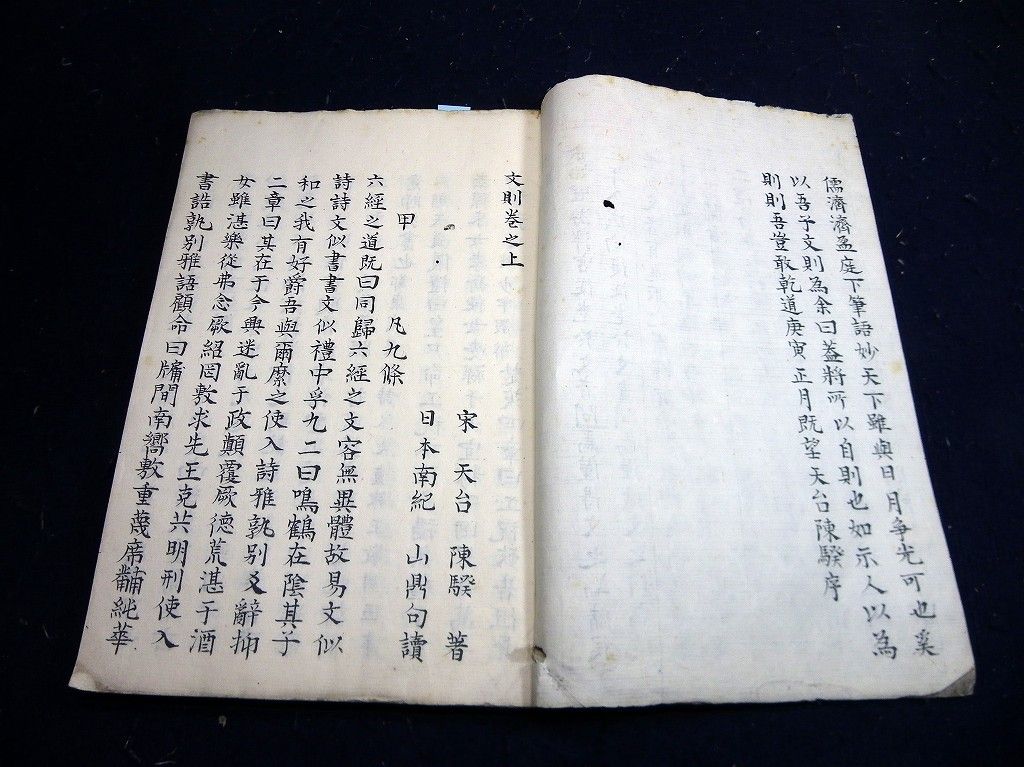 儒濟濟盈庭下筆語妙天下雖與日月爭光可也奚
以吾子文則為余曰蓋將所以自則也如示人以為
則則吾豈敢乾道庚寅正月既望天台陳騤序
文則卷之上
宋 天台 陳騤 著
日本南紀 山鼎句讀
甲 凡九條
六經之道既曰同歸六經之文容無異體故易文似
詩詩文似書書文似禮中孚九二曰鳴鶴在陰其子
和之我有好爵吾與爾縻之使入詩雅孰別爻辭抑
二章曰其在于今興迷亂于政顛覆厥德荒湛于酒
女雖湛樂從弗念厥紹罔敷求先王克共明刑使入
書誥孰別雅語顧命曰牖間南嚮敷重蔑席黼純華